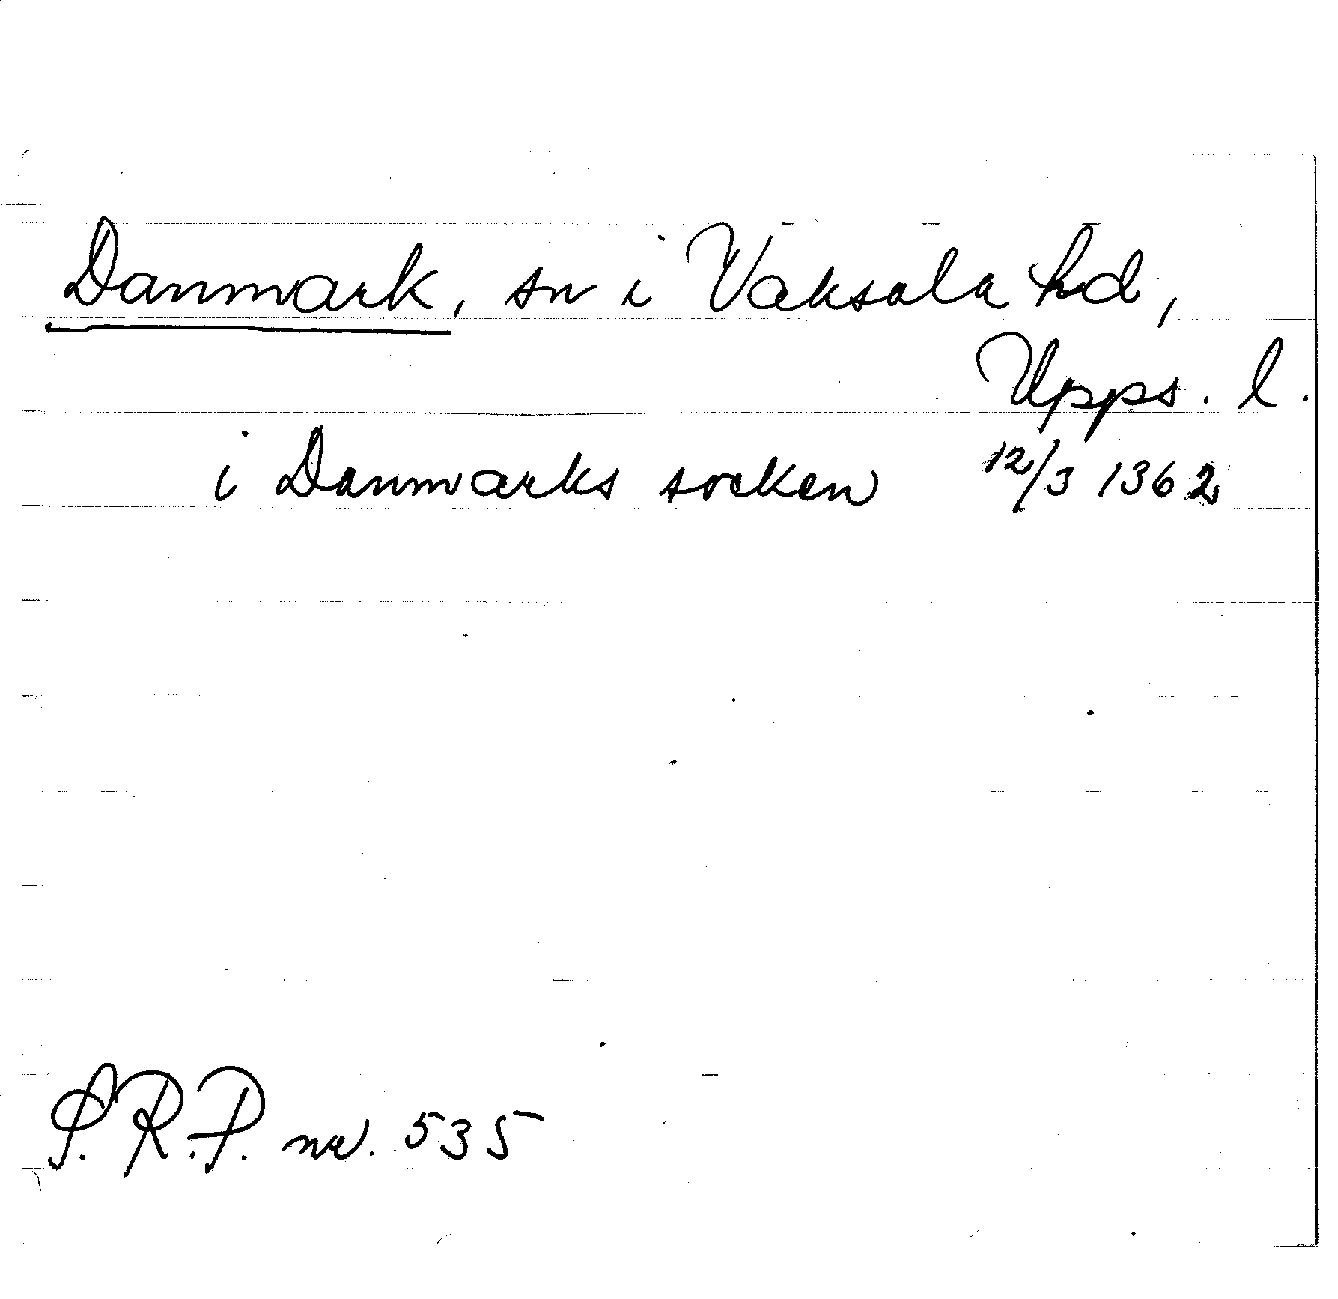 Danmark, sn i Vaksala hd,
Upps. l.
i Danmarks socken 12/3 1362
S.R.P. nr. 535